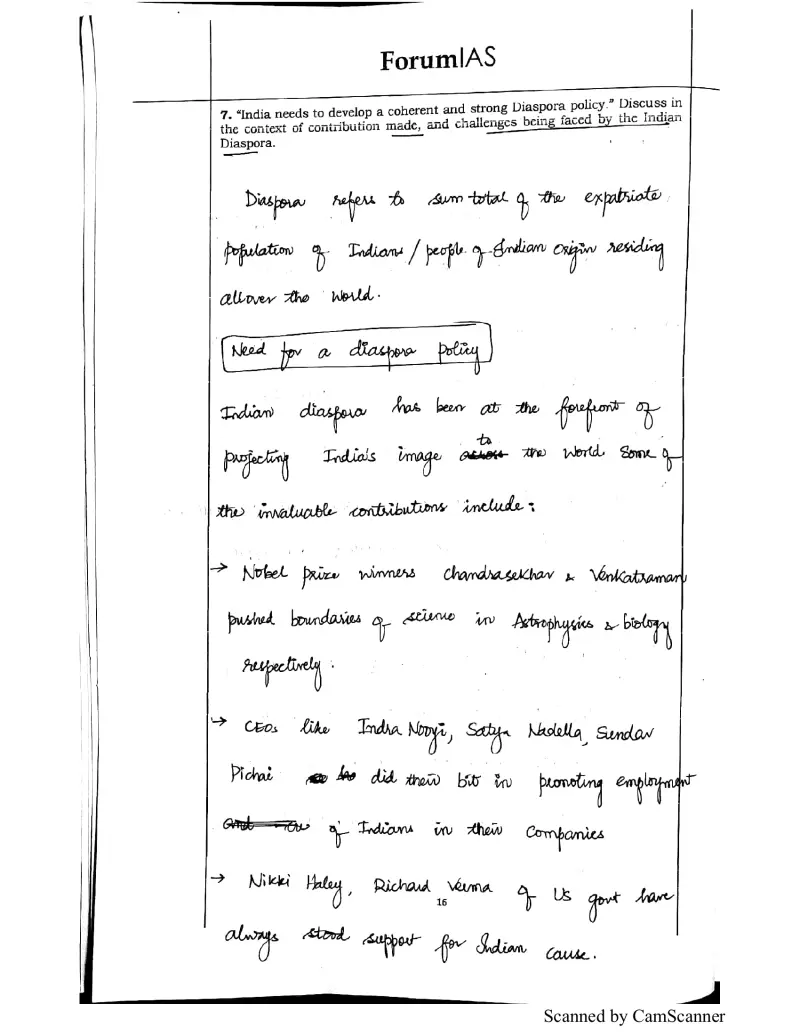 ForumIAS
7. "India needs to develop a coherent and strong Diaspora policy." Discuss in
the context of contribution made, and challenges being faced by the Indian
Diaspora.
Diaspora refers to sum-total of the expatriate
population of Indians / people of Indian Origin residing
all over the World.
Need for a diaspora policy
Indian diaspora has been at the forefront of
to
projecting India's image across the World. Some of
the invaluable contributions include:
→ Nobel prize winners Chandrasekhar & Venkatraman
pushed boundaries of science in Astrophysics & biology
respectively.
→ CEOs like Indra Nooyi, Satya Nadella, Sundar
Pichai did their bit in promoting employment
of Indians in their Companies
→ Nikki Haley, Richard Verma of US govt have
16
always stood support for Indian cause.
Scanned by CamScanner